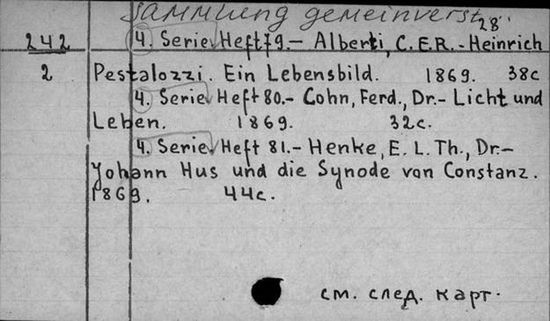 Sammlung gemeinverst. 28.
242 4. Serie. Heft 79.- Alberti, C.E.R.-Heinrich
2 Pestalozzi. Ein Lebensbild. 1869. 38c
4. Serie. Heft 80.- Cohn, Ferd., Dr.- Licht und
Leben. 1869. 32c.
4. Serie. Heft 81.- Henke, E. L. Th., Dr.-
Johann Hus und die Synode von Constanz.
1869. 44c.
см. след. карт.